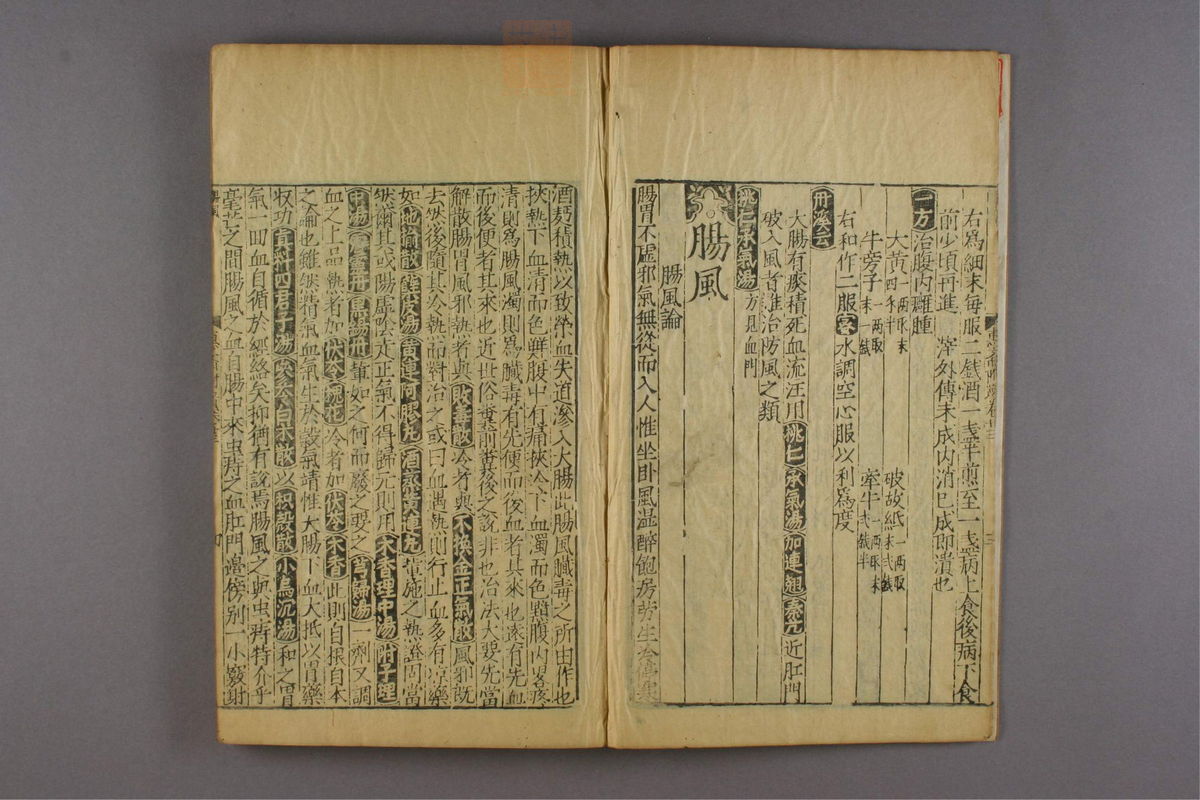 右爲細末每服二戔酒一盞半煎至一盞病上食後病下食
前少頃再進 滓外傅未成內消已成即潰也
一方 治腹內癰腫
大黃四戔半一兩取末 破故紙末弍戔一兩取
牛旁子末一戔一兩取 牽牛弍戔半一兩取末
右和作二服蜜水調空心服以利爲度
丹溪云
大腸有痰積死血流注用桃仁承氣湯加連翹秦艽近肛門
破入風者難治防風之類
桃仁承氣湯 方見血門
腸風
腸風論
腸胃不虛邪氣無從而入人惟坐臥風濕醉飽房勞生冷停寒
酒麪積熱以致榮血失道滲入大腸此腸風臟毒之所由作也
挾熱下血清而色鮮腹中有痛挾冷下血濁而色黯腹內畧疼
清則爲腸風濁則爲臟毒有先便而後血者其來也遠有先血
而後便者其來也近世俗糞前糞後之說非也治法大要先當
解散腸胃風邪熱者與敗毒散冷者與不換金正氣散風邪既
去然後隨其冷熱而對治之或曰血遇熱則行止血多有凉藥
如地榆散熊皮湯黃連阿膠丸酒蒸黃連丸輩施之熱證固當
然爾其或陽虛陰走正氣不得歸元則用木香理中湯附子理
中湯震靈丹黑錫丹輩如之何而廢之要之芎歸湯一劑又調
血之上品熱者加茯苓槐花冷者加茯苓木香此則自根自本
之論也雖然精氣血氣生於穀氣靖惟大腸下血大抵以胃藥
收功眞料四君子湯參苓白朮散以枳殼散小烏沉湯和之胃
氣一回血自循於經絡矣抑猶有說焉腸風之與虫痔特介乎
毫芒之間腸風之血自腸中來虫痔之血肛門邊傍別一小竅射